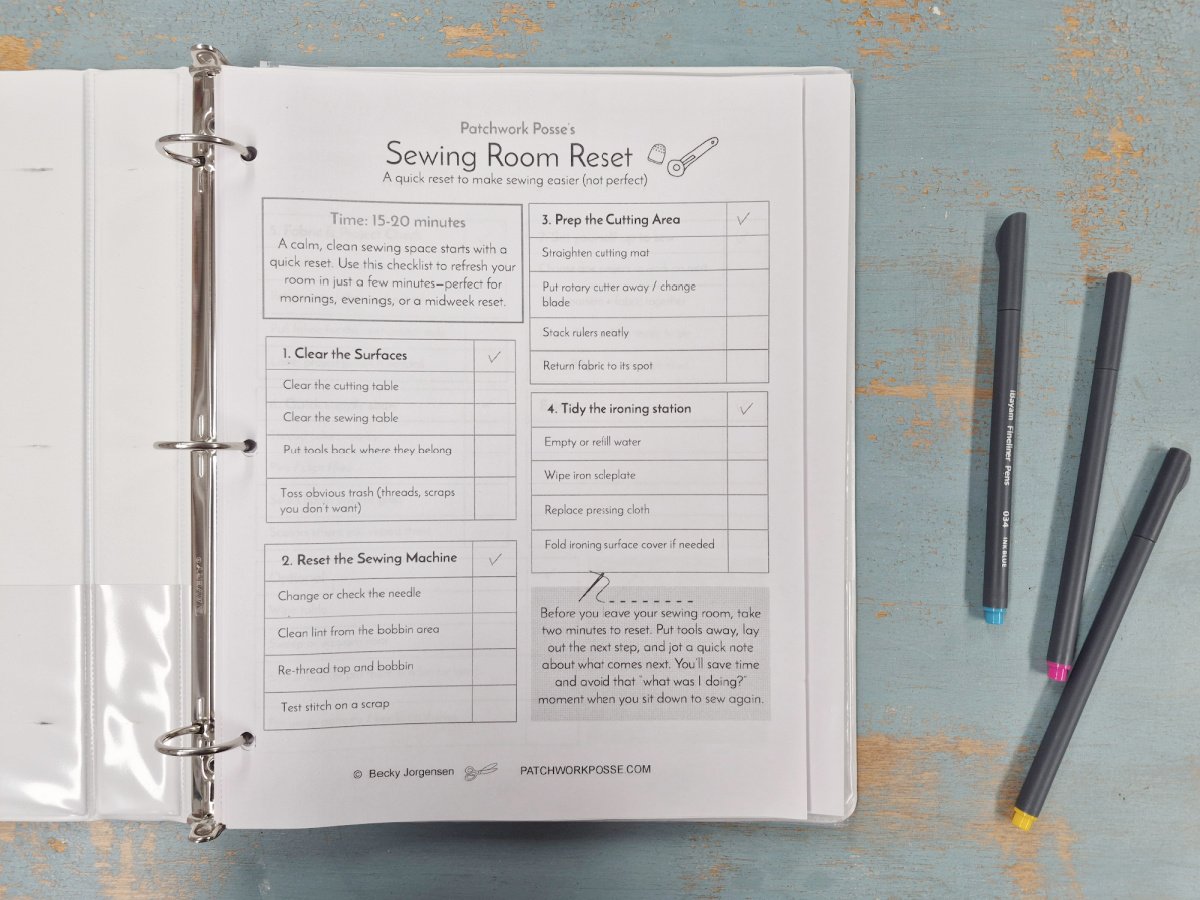 Patchwork Posse's
Sewing Room Reset
A quick reset to make sewing easier (not perfect)
Time: 15-20 minutes
A calm, clean sewing space starts with a
quick reset. Use this checklist to refresh your
room in just a few minutes—perfect for
mornings, evenings, or a midweek reset.
1. Clear the Surfaces ✓
Clear the cutting table
Clear the sewing table
Put tools back where they belong
Toss obvious trash (threads, scraps
you don't want)
2. Reset the Sewing Machine ✓
Change or check the needle
Clean lint from the bobbin area
Re-thread top and bobbin
Test stitch on a scrap
3. Prep the Cutting Area ✓
Straighten cutting mat
Put rotary cutter away / change
blade
Stack rulers neatly
Return fabric to its spot
4. Tidy the ironing station ✓
Empty or refill water
Wipe iron soleplate
Replace pressing cloth
Fold ironing surface cover if needed
Before you leave your sewing room, take
two minutes to reset. Put tools away, lay
out the next step, and jot a quick note
about what comes next. You'll save time
and avoid that "what was I doing?"
moment when you sit down to sew again.
© Becky Jorgensen
PATCHWORKPOSSE.COM
iBayam Fineliner Pens 034 INK BLUE